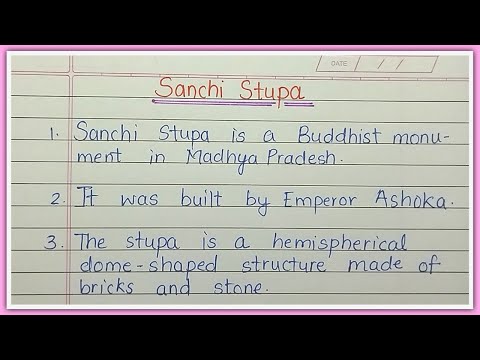 DATE: / /
Sanchi Stupa
1. Sanchi Stupa is a Buddhist monu-
ment in Madhya Pradesh.
2. It was built by Emperor Ashoka.
3. The stupa is a hemispherical
dome-shaped structure made of
bricks and stone.